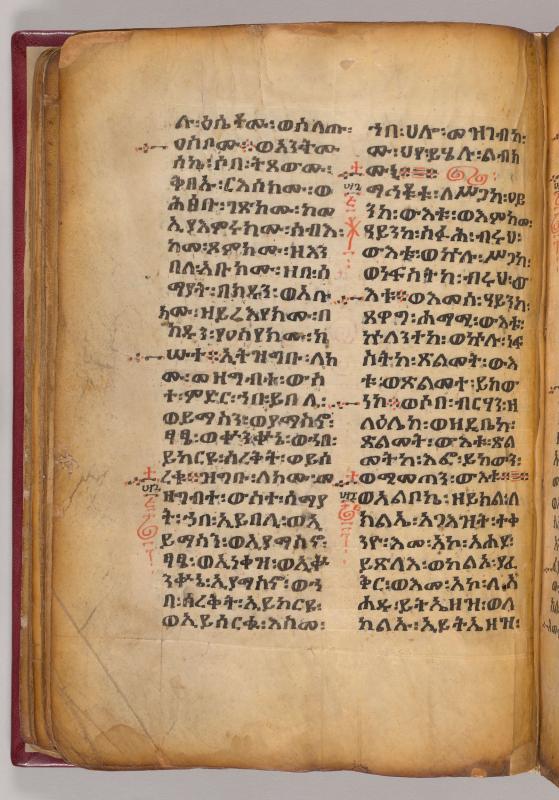 ሉ፡ዕሴቶሙ፡ወሰለጡ፡
ህስቦሙ፨ወአንትሙ
ሰኬ፡ሶበ፡ትጸውሙ፡
ቅብኡ፡ርእሰክሙ፡ወ
ሕፅቡ፡ገጽክሙ፡ከመ
ኢያእምሩክሙ፡ሰብእ፡
ከመ፡ጾምክሙ፡ዘእን
በለ፡አቡክሙ፡ዘበ፡ሰ
ማያት፡በክዱን፡ወአቡ
ክሙ፡ዘይሬእየክሙ፡በ
ክዱን፡የዐስየክሙ፡ክ
ሡተ፨ኢትዝግቡ፡ለክ
ሙ፡መዝግብተ፡ውስ
ተ፡ምድር፡ኀበ፡ይበሊ፡
ወይማስን፡ወያማስኖ፡
ፃፄ፡ወቍንቍኔ፡ወኀበ፡
ይከርዩ፡ሰረቅት፡ወይሰ
ርቁ፨ዝግቡ፡ለክሙ፡መ
ዝግብተ፡ውስተ፡ሰማያ
ት፡ኀበ፡ኢይበሊ፡ወኢ
ይማስን፡ወኢያማስኖ፡
ፃፄ፡ወኢነቀዝ፡ወኢቍ
ንቍኔ፡ኢያማስኖ፡ወኀ
በ፡ሰረቅት፡ኢይከርዩ፡
ወኢይሰርቁ፡እስመ፡
ኀበ፡ሀሎ፡መዝገብክ፡
ሙ፡ህየ፡ይሄሉ፡ልብክ
ሙኒ፨
ማኅቶቱ፡ለሥጋከ፡ዐይ
ንከ፡ውእቱ፡ወእምከመ፡
ዓይንከ፡ስፉሕ፡ብሩህ፡
ውእቱ፡ወኵሉ፡ሥጋከ፡
ወነፍስትከ፡ብሩህ፡ው
እቱ፨ወእመሰ፡ዓይንከ፡
ጸዋግ፡ሐማሚ፡ውእቱ፡
ኵለንትከ፡ወኵሉ፡ነፍ
ስትከ፡ጽልመት፡ውእ
ቱ፡ወጽልመተ፡ይከው
ንከ፨ወሶበ፡ብርሃን፡ዘ
ለዕሌከ፡ወዘዴቤከ፡
ጽልመት፡ውእቱ፡ጽል
መትከ፡እፎ፡ይከውን፡
ወሚመጠን፡ውእቱ፨
ወአልቦኬ፡ዘይክል፡ለ
ክልኤ፡አጋእዝት፡ተቀ
ንዮ፡እመ፡አኮ፡አሐደ፡
ይጸልእ፡ወካልአ፡ያፈ
ቅር፡ወእመ፡አኮ፡ለአ
ሐዱ፡ይትኤዘዝ፡ወለ
ካልኡ፡ኢይትኤዘዝ፡